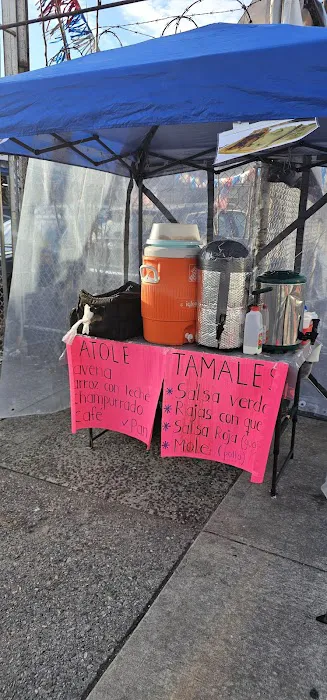 ATOLE
avena
arroz con leche
champurrado
café
✓Pan
TAMALES
* Salsa verde
* Rajas con que
* Salsa Roja
* Mole (pollo)
Igloo